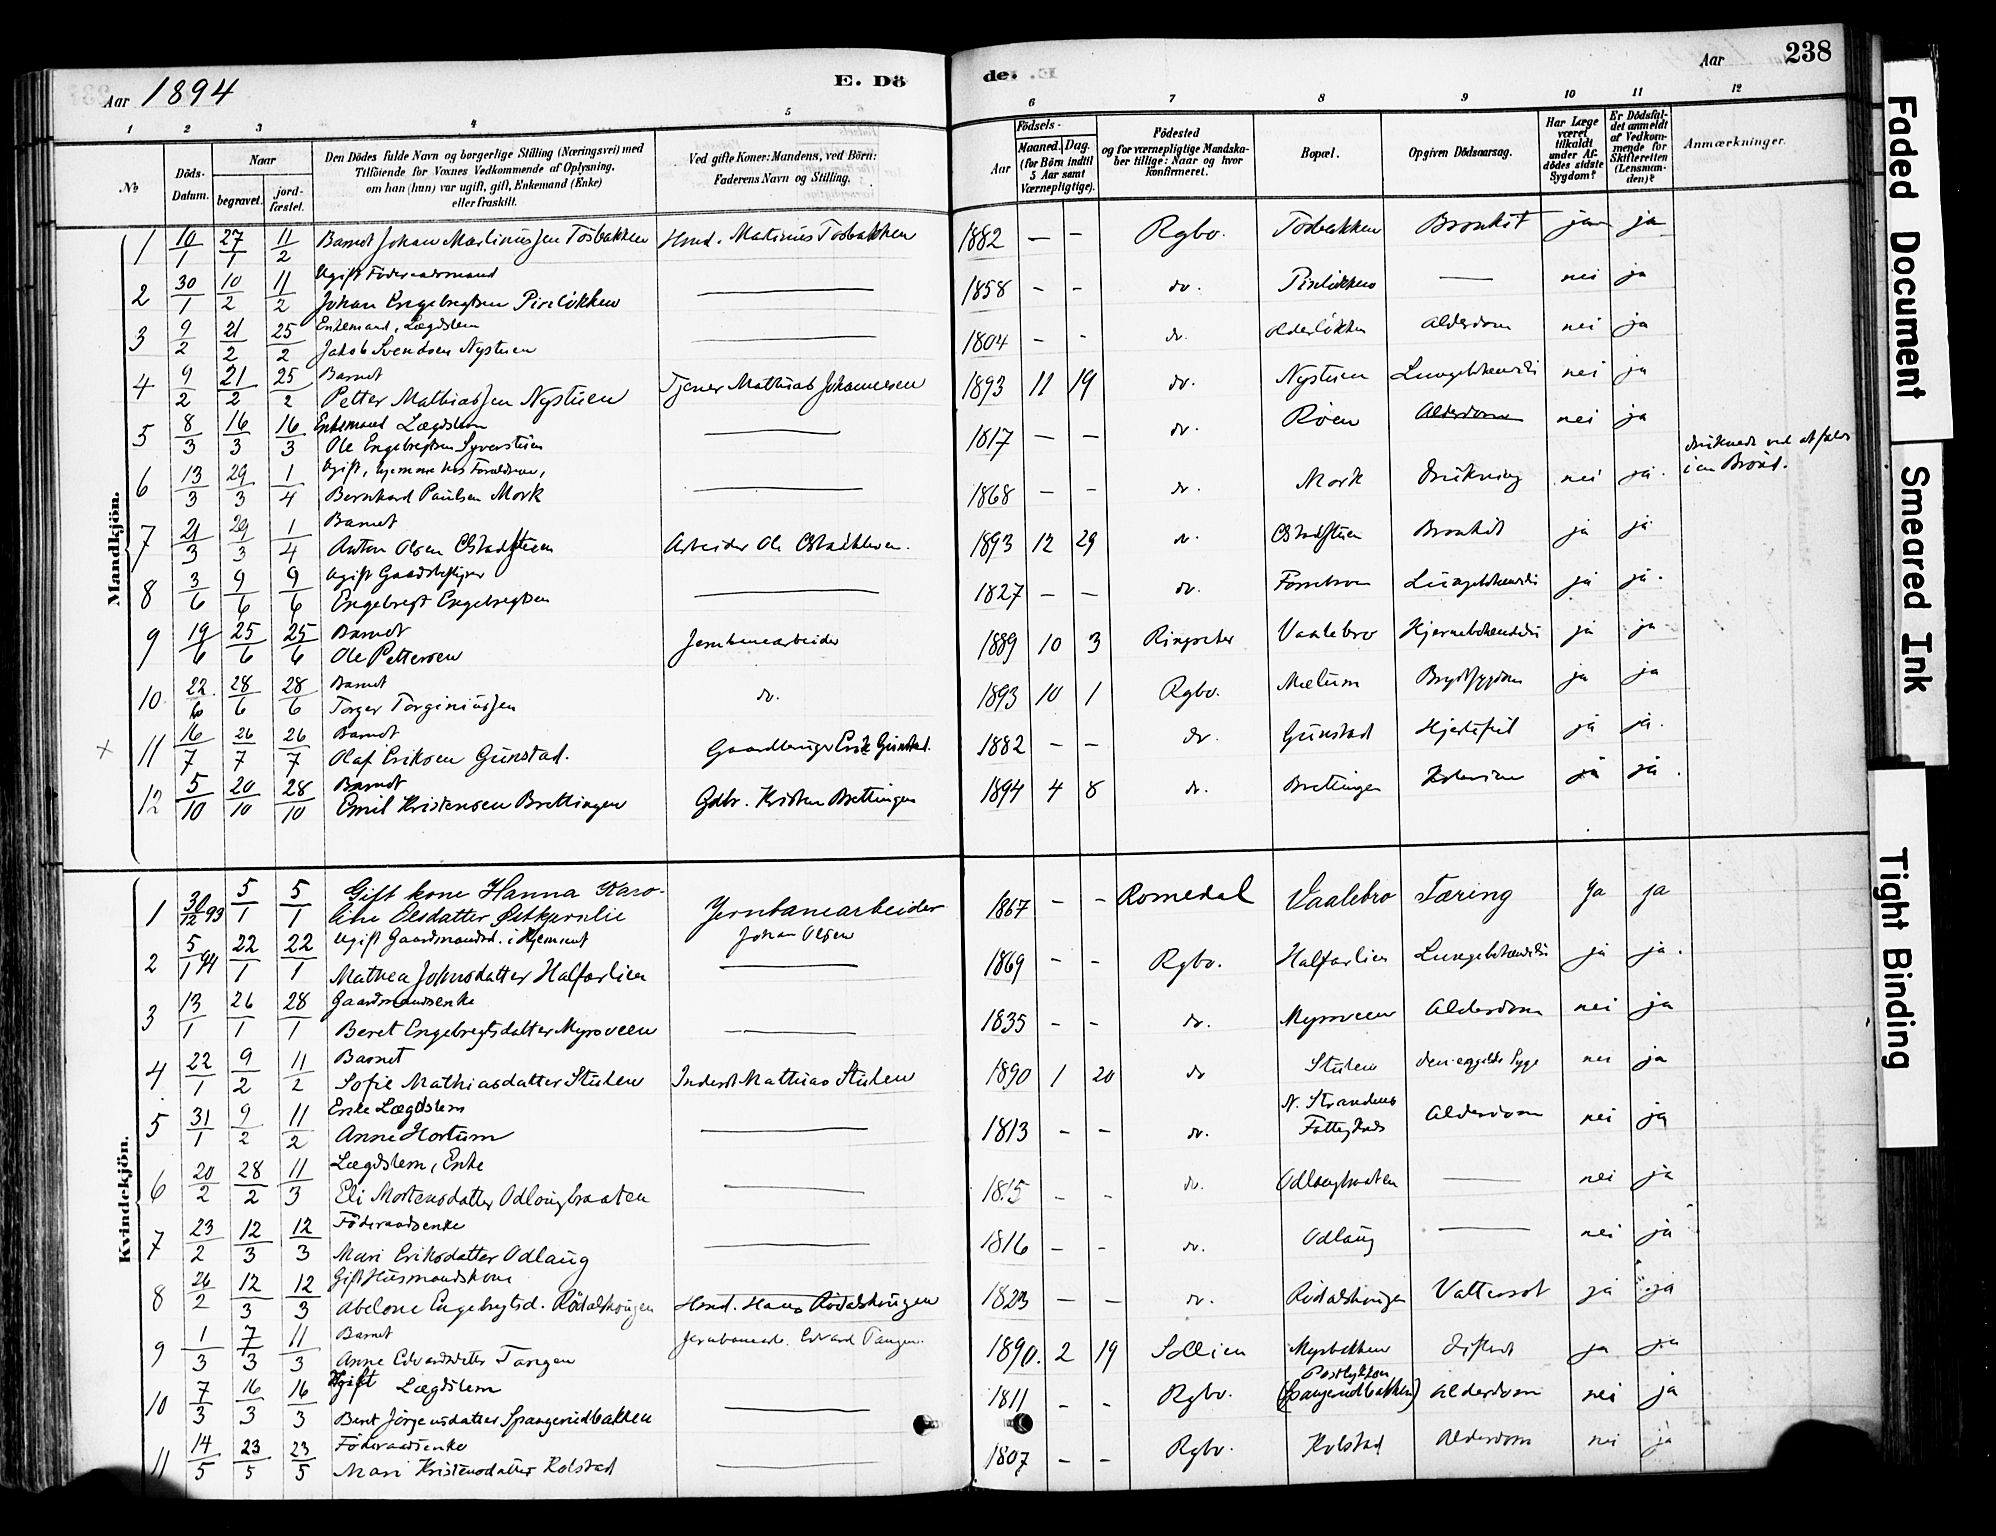 Aar 1894 E. Dö
de. Aar 238
1 2 3 4 5 6 7 8 9 10 11 12
No
Döds-Datum.
Naar
begravet.
jord-fæstet.
Den Dödes fulde Navn og borgerlige Stilling (Næringsvei) med
Tilföiende for Voxnes Vedkommende af Oplysning,
om han (hun) var ugift, gift, Enkemand (Enke)
eller fraskilt.
Ved gifte Koner: Mandens, ved Börn:
Faderens Navn og Stilling.
Födsels-
Aar
Maaned. Dag.
(for Börn indtil
5 Aar samt
Værnepligtige).
Födested
og for værnepligtige Mandska-
ber tillige: Naar og hvor
konfirmeret.
Bopæl.
Opgiven Dödsaarsag.
Har Læge
været
tilkaldt
under Af-
dödes sidste
Sygdom?
Er Dödsfal-
det anmeldt
af Vedkom-
mende for
Skifteretten
(Lensman-
den)?
Anmærkninger.
Mandkjön.
1 10/1 27/1 11/2 Barnet Johan Martinussen Tosbakken Hmd. Matinus Tosbakken 1882 — — Rgbo. Tosbakken Bronkit ja ja
2 30/1 10/2 11/2 Ugift Föderaadsmand
Johan Engebregtsen Pinlökken — 1858 - - do. Pinlökken — nei ja
3 9/2 21/2 25/2 Enkemand, Lægdslem
Jakob Svendsen Nystuen — 1804 - - do. Olderlökken Alderdom nei ja
4 9/2 21/2 25/2 Barnet
Petter Mathiassen Nystuen Tjener Mathias Johannesen 1893 11 19 do. Nystuen Lungebetændelse nei ja
5 8/3 16/3 16/3 Enkemand Lægdslem
Ole Engebregtsen Syverstuen — 1817 — — do. Röen Alderdom nei ja
6 13/3 29/3 1/4 Ugift, hjemme hos Forældrene,
Bernhard Paulsen Mork — 1868 — - do. Mork Drukning nei ja. druknede ved at falde
i en Brönd.
7 21/3 29/3 1/4 Barnet
Anton Olsen Arbeider Ole 1893 12 29 do. Bronkit ja ja
8 3/6 9/6 9/6 Ugift Gaardbestyrer
Engebregt Engebregtsen — 1827 — — do. Lungebetændelse ja ja.
9 19/6 25/6 25/6 Barnet
Ole Pettersen Jernbanearbeider 1889 10 3 Ringseter Vaalebro Hjernebetændelse ja ja
10 22/6 28/6 28/6 Barnet
Torger Torginiussen do. 1893 10 1 Rgbo. Mælum Brystsygdom ja ja
11 16/7 26/7 26/7 Barnet
Olaf Eriksen Gunstad. Gaardbruger Erik Gunstad. 1882 — — do. Gunstad Hjertefeil ja ja.
12 5/10 20/10 28/10 Barnet
Emil Kristensen Brettingen Gdbr. Kristen Brettingen 1894 4 8 do. Brettingen ja ja.
Kvindekjön.
1 30/12 93 5/1 5/1 Gift kone Hanna Karo-
line Olsdatter Østkjærnlie Jernbanearbeider
Johan Olsen 1867 - - Romedal Vaalebro Tæring Ja ja
2 5/1 94 22/1 22/1 Ugift Gaardmandsd. i Hjemmet
Mathea Johnsdatter Halfarlien — 1869 - - Rgbo. Halfarlien Lungebetændelse ja ja.
3 13/1 26/1 28/1 Gaardmandsenke
Beret Engebregtsdatter Myroveen — 1835 - - do. Myroveen Alderdom nei ja
4 22/1 9/2 11/2 Barnet
Sofie Mathiasdatter Stulen Inderst Mathias Stulen 1890 1 20 do Stulen den engelske Syge nei ja
5 31/1 9/2 11/2 Enke Lægdslem
Anne Hortum — 1813 - - do. N. Strandens
Fattighus Alderdom nei ja
6 20/2 28/2 11/3 Lægdslem, Enke
Eli Mortensdatter Odlougbraaten — 1815 - - do. Odlougbraaten — nei ja
7 23/2 12/3 12/3 Föderaadsenke
Mari Eriksdatter Odlaug — 1816 — - do. Odlaug — nei ja
8 26/2 12/3 12/3 Gift Husmandskone
Abelone Engebregtsd. Rödalshougen Hmd. Hans Rödalshougen 1823 — — do. Rödalshougen Vattersot ja ja
9 1/3 7/3 11/3 Barnet
Anne Edvardsdatter Tangen Jernbanearb. Edvard Tangen. 1890. 2 19 Sollien Myrbakken ja ja
10 7/3 16/3 16/3 Ugift Lægdslem
Beret Jörgensdatter Spangerudbakken — 1811 - - Rgbo. Postlykken
(Spangerudbakken) Alderdom nei ja
11 14/5 23/5 23/5 Föderaadsenke
Mari Kristensdatter Kolstad — 1807 - - Rgbo. Kolstad Alderdom nei ja
Faded Document
Smeared Ink
Tight Binding